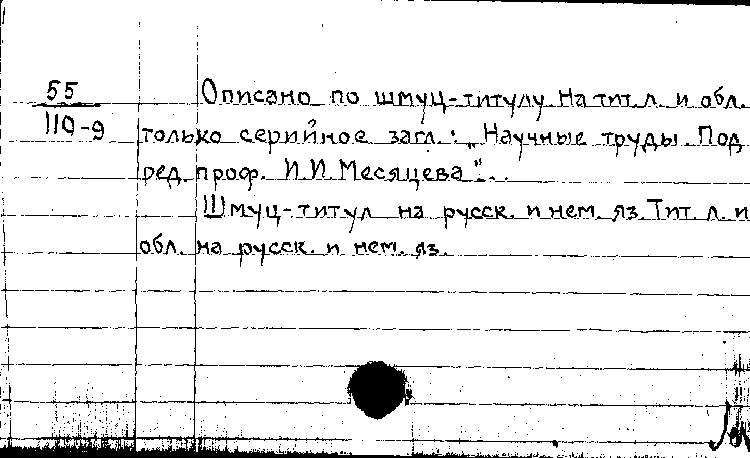 55
110-9
Описано по шмуц-титулу. На тит. л. и обл.
только серийное загл.: „Научные труды. Под
ред. проф. И.И. Месяцева".
Шмуц-титул на русск. и нем. яз. Тит. л. и
обл. на русск. и нем. яз.